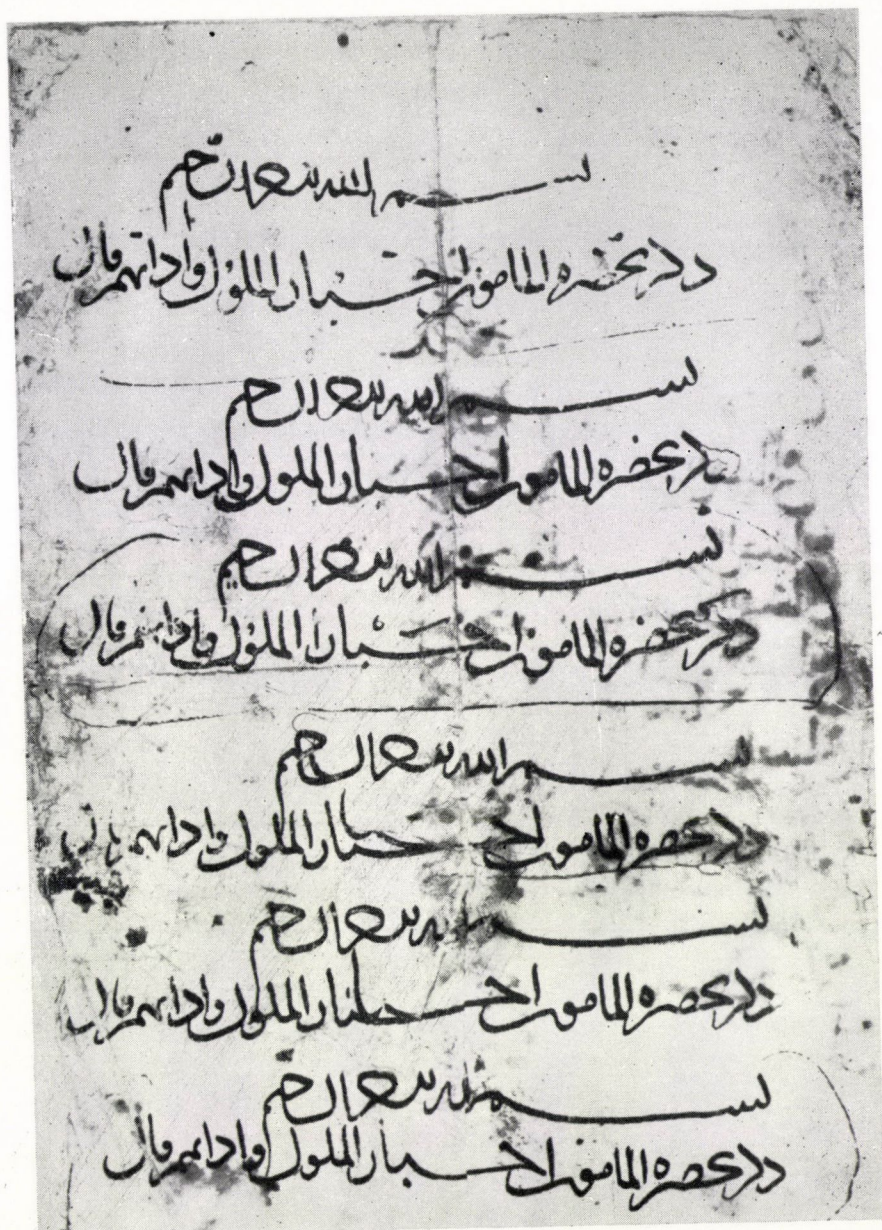 بسم الله الرحمن الرحيم
ذكر بحضرة المامون اخبار الملوك وادابهم
بسم الله الرحمن الرحيم
ذكر بحضرة المامون اخبار الملوك وادابهم
بسم الله الرحمن الرحيم
ذكر بحضرة المامون اخبار الملوك وادابهم
بسم الله الرحمن الرحيم
ذكر بحضرة المامون اخبار الملوك وادابهم
بسم الله الرحمن الرحيم
ذكر بحضرة المامون اخبار الملوك وادابهم
بسم الله الرحمن الرحيم
ذكر بحضرة المامون اخبار الملوك وادابهم